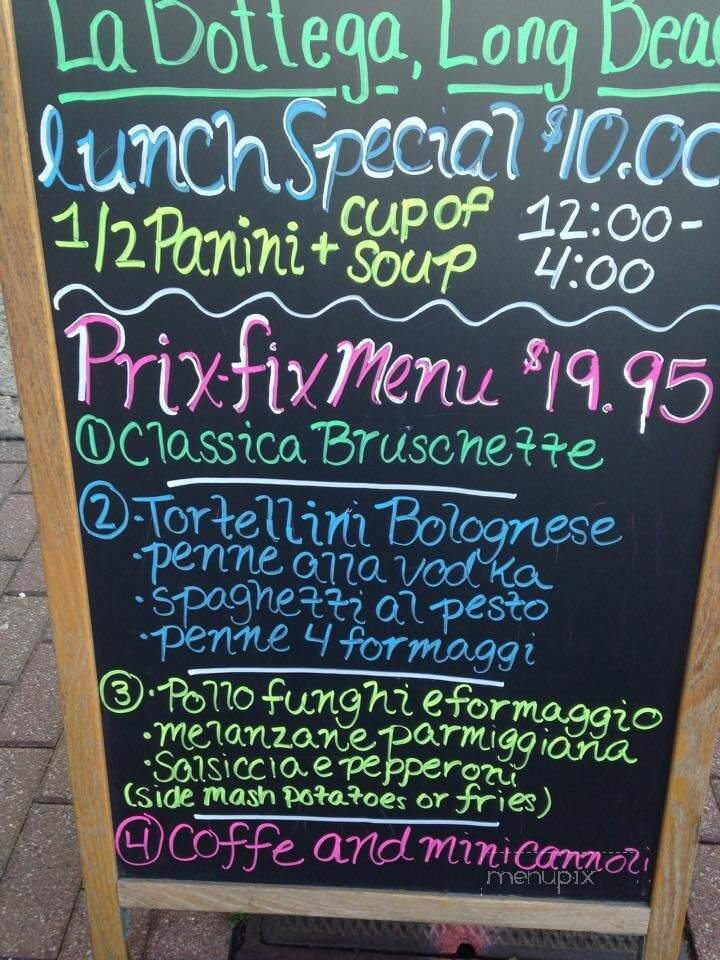 La Bottega, Long Bea
lunch Special $10.00
1/2 Panini + cup of soup 12:00-4:00
Prix-fix Menu $19.95
① Classica Bruschette
② · Tortellini Bolognese
· penne alla vodka
· spaghetti al pesto
· penne 4 formaggi
③ · Pollo funghi e formaggio
· melanzane parmiggiana
· Salsiccia e pepperoni
(side mash potatoes or fries)
④ Coffe and mini cannoli
menupix